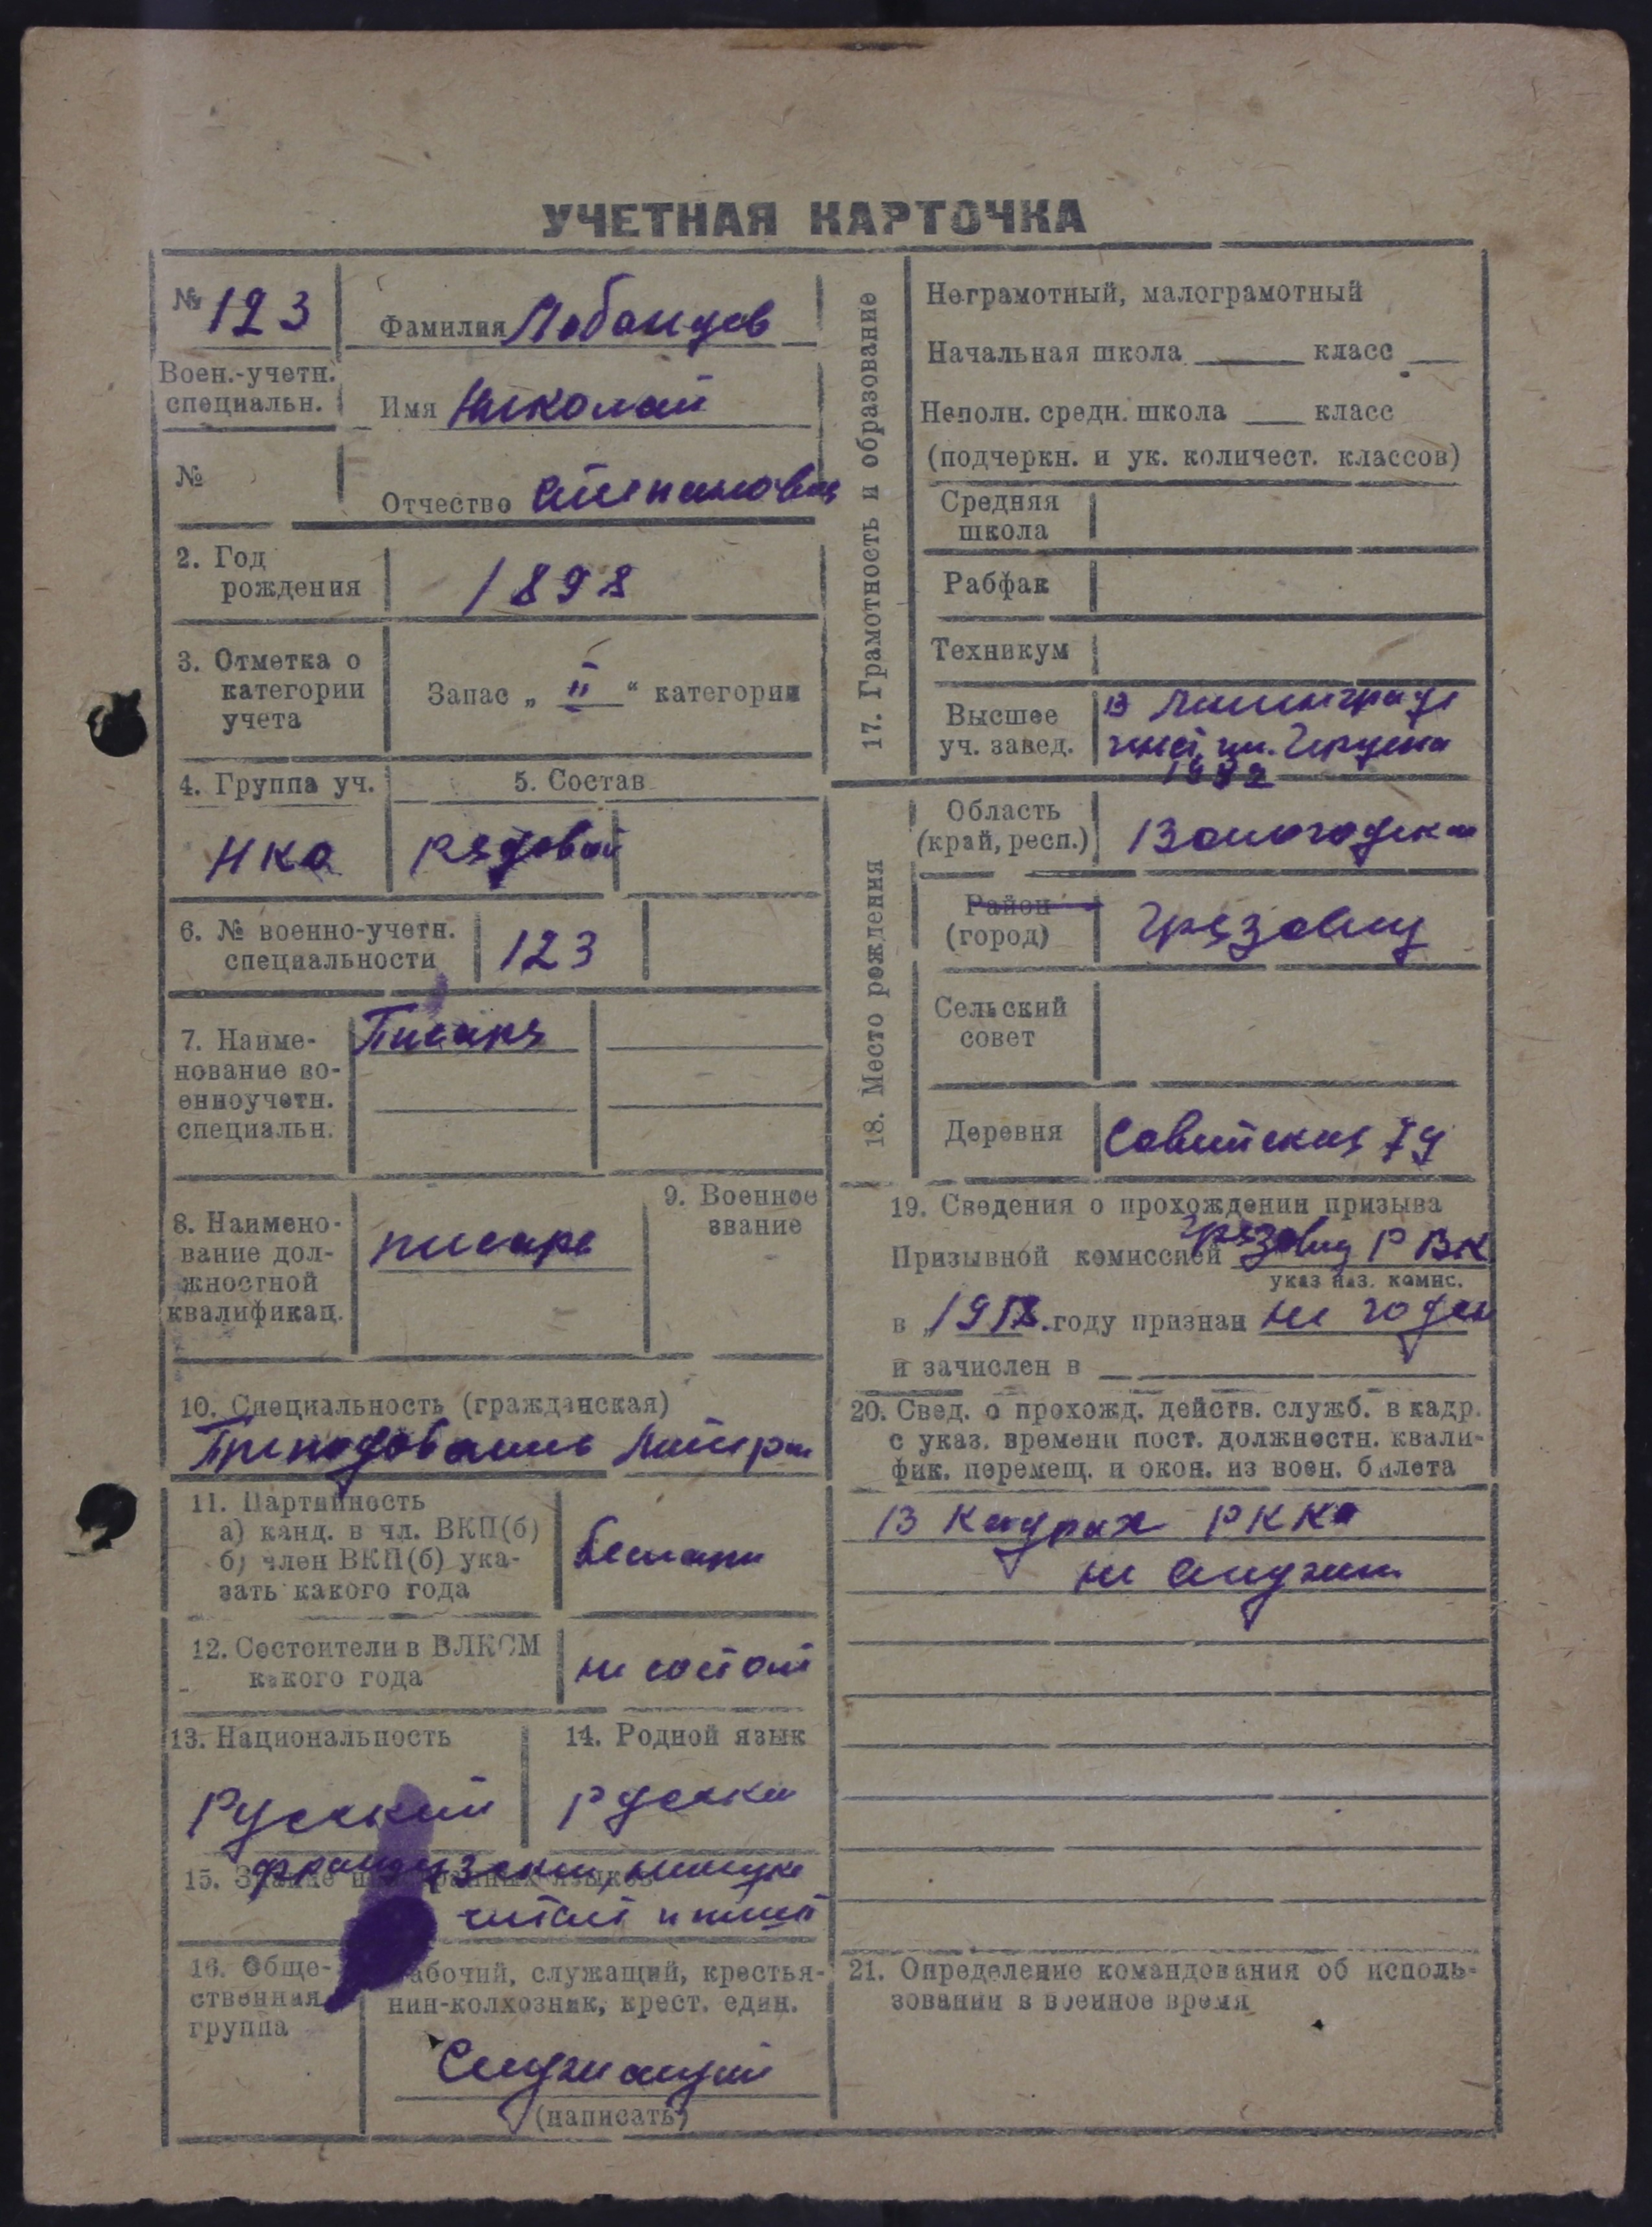 УЧЕТНАЯ КАРТОЧКА
№ 123
Фамилия Лобанцов
Воен.-учетн.
специальн.
Имя Николай
№
Отчество Степанович
2. Год
рождения
1898
3. Отметка о
категории
учета
Запас „ II “ категории
4. Группа уч.
5. Состав
НКО
рядовой
6. № военно-учетн.
специальности
123
7. Наиме-
нование во-
енноучетн.
специальн.
Писаря
8. Наимено-
вание дол-
жностной
квалификац.
писарь
9. Военное
звание
10. Специальность (гражданская)
Преподаватель
11. Партийность
а) канд. в чл. ВКП(б)
б) член ВКП(б) ука-
зать какого года
беспарт
12. Состоител и в ВЛКСМ
какого года
не состоит
13. Национальность
14. Родной язык
Русский
русский
15. Знание иностранных языков
французский, немецкий
читает и пишет
16. Обще-
ственная
группа
Рабочий, служащий, крестья-
нин-колхозник, крест. един.
Служащий
(написать)
17. Грамотность и образование
Неграмотный, малограмотный
Начальная школа ____ класс __
Неполн. средн. школа ___ класс
(подчеркн. и ук. количест. классов)
Средняя
школа
Рабфак
Техникум
Высшее
уч. завед.
в Ленинграде
инст. им. Герцена
18. Место рождения
Область
(край, респ.)
Вологодская
Район
(город)
Грязовец
Сельский
совет
Деревня
Советская 79
19. Сведения о прохождении призыва
Призывной комиссией Грязовец РВК
указ наз. комис.
в „1918.году признан не годен
и зачислен в
20. Свед. о прохожд. действ. служб. в кадр.
с указ. времени пост. должностн. квали-
фик. перемещ. и окон. из воен. билета
В Кадрах РККА
не служил
21. Определение командования об исполь-
зовании в военное время